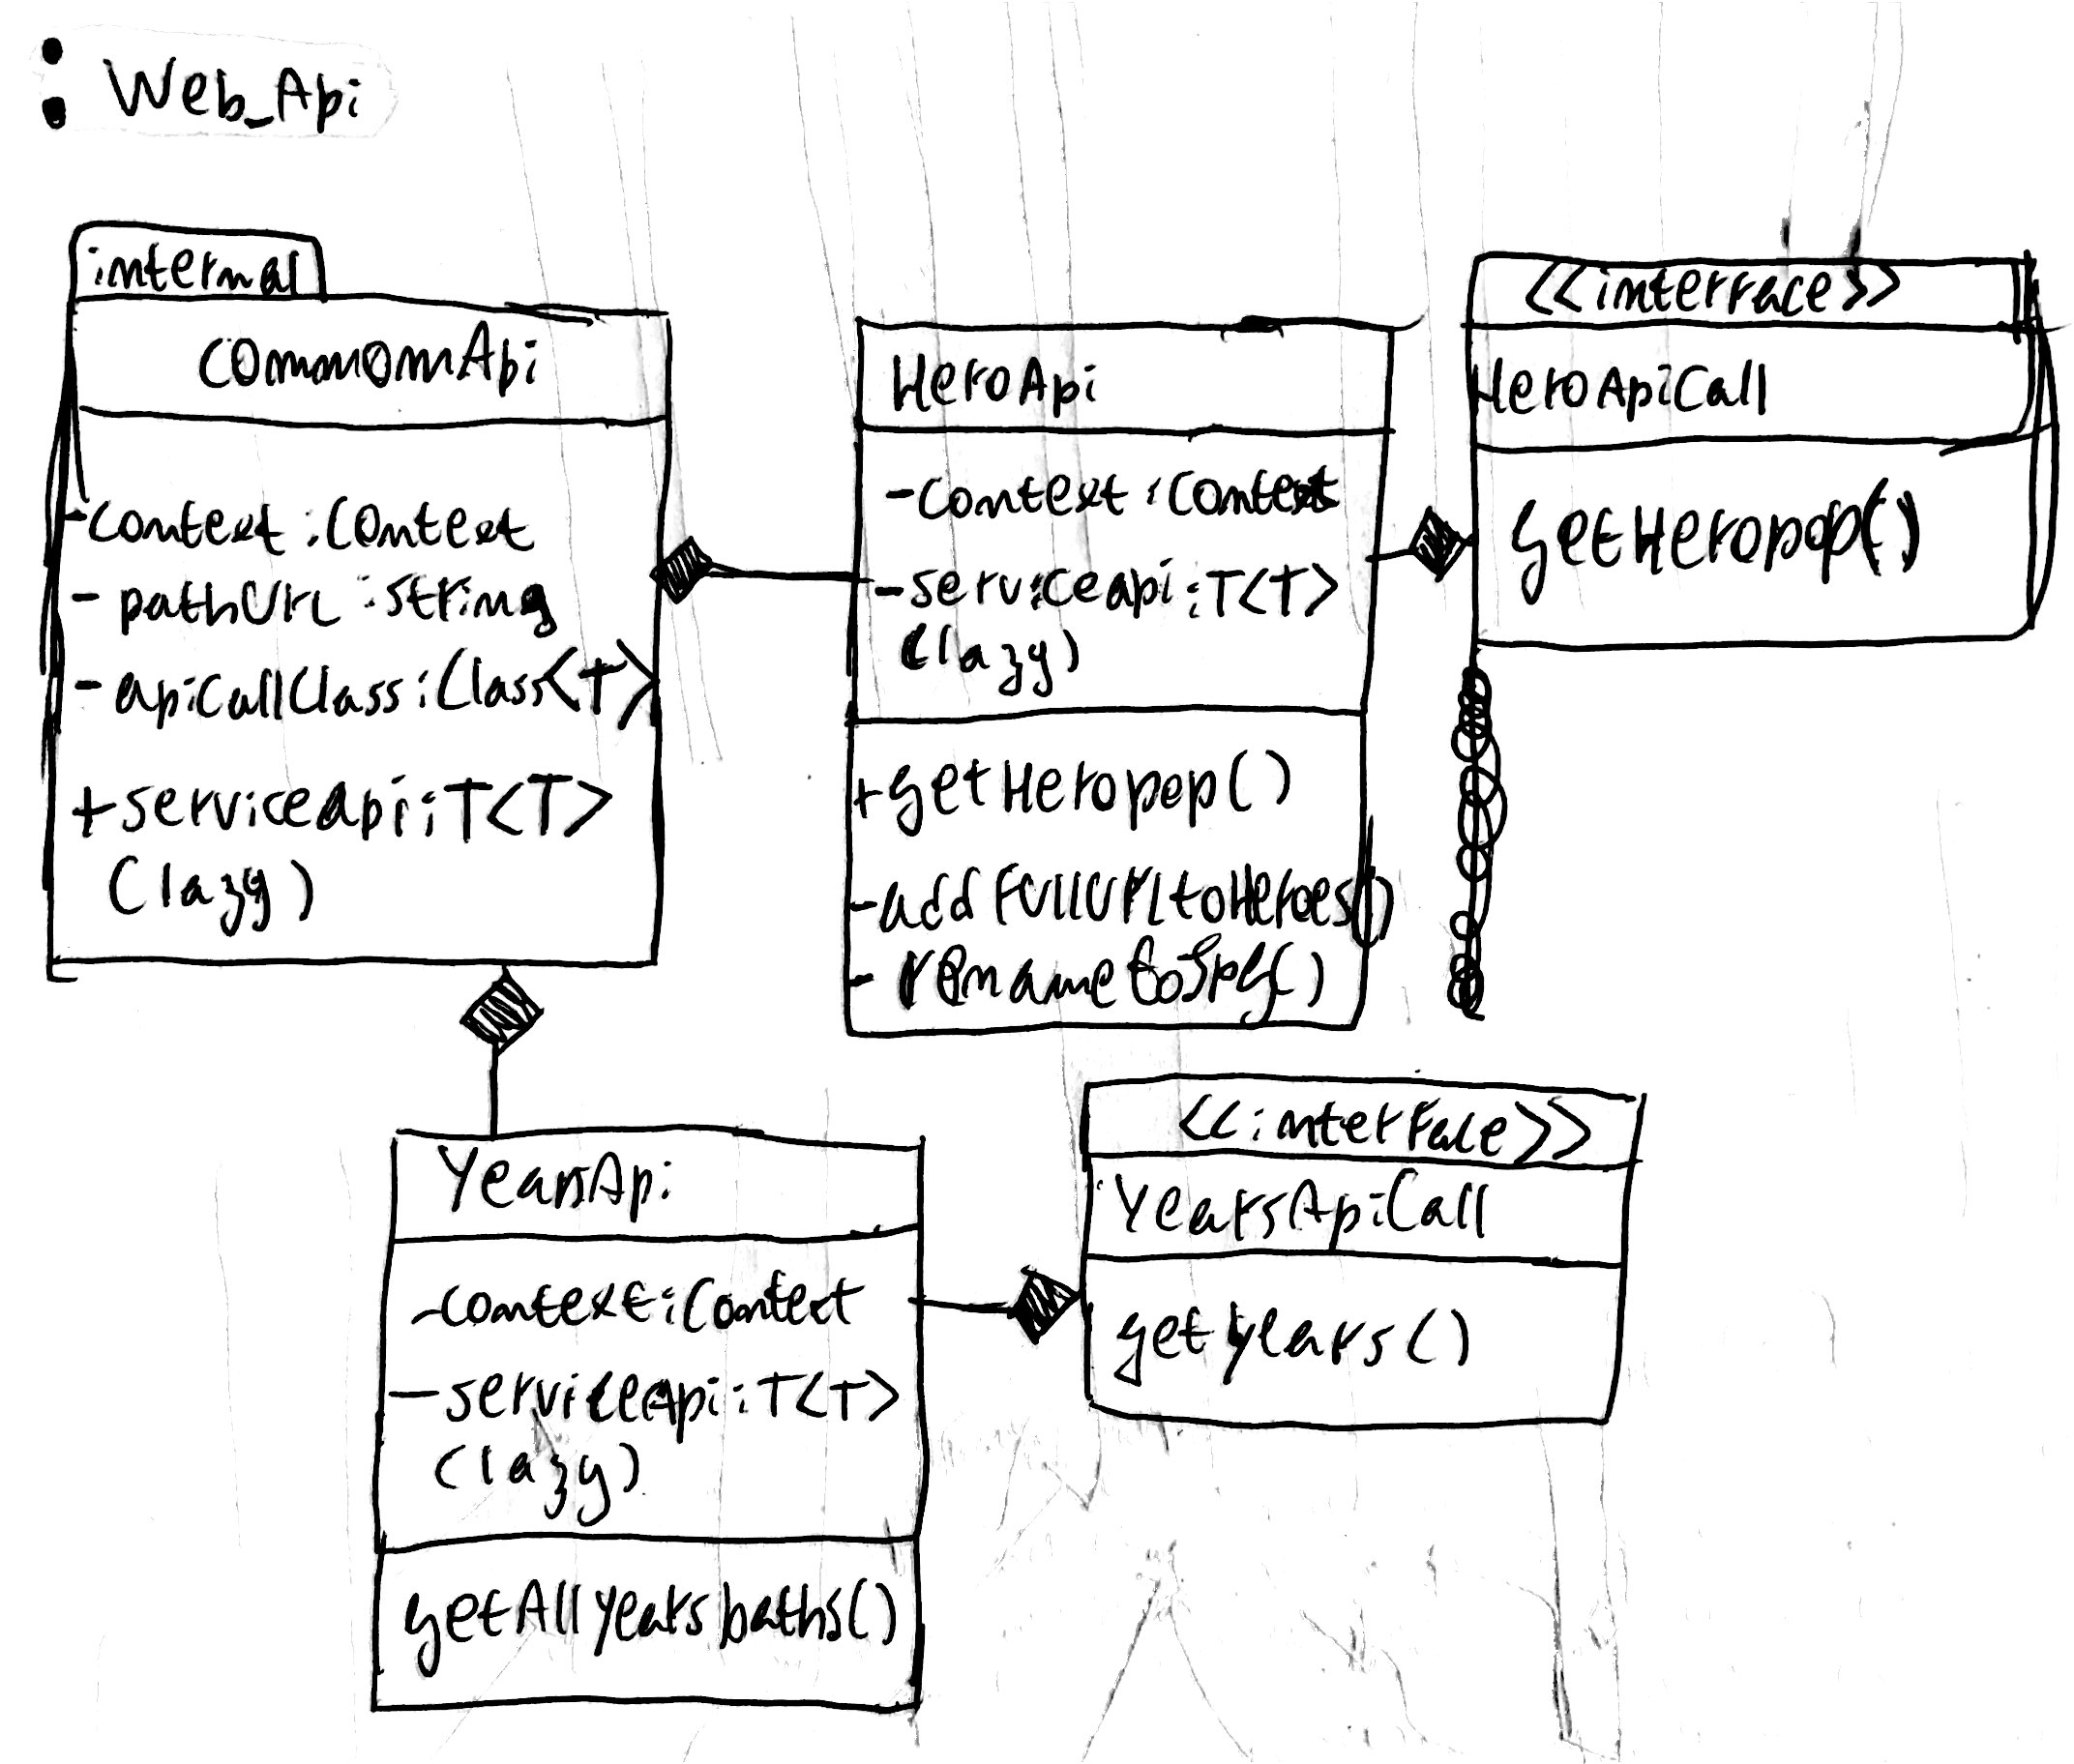 : Web_Api
internal
CommonApi
-context:Context
- pathUrl:String
- apiCallClass:Class<T>
+serviceapi:T<T>
(lazy)
HeroApi
-context:Context
-serviceapi:T<T>
(lazy)
+getHeropop()
-addFullUrltoHeroes()
- renametoJpg()
<<interface>>
HeroApiCall
getHeropop()
YearsApi
-context:Context
-serviceApi:T<T>
(lazy)
getAllyearspaths()
<<interface>>
YearsApiCall
getyears()